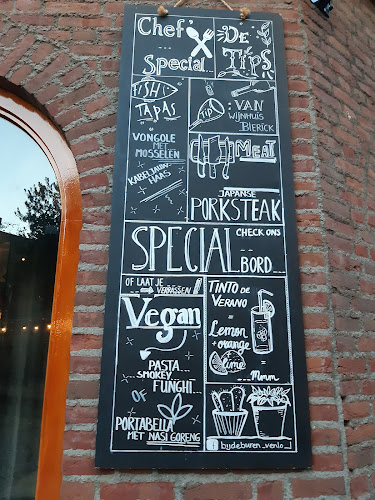 Chef's
Special
De
Tips
FISH
TAPAS
VONGOLE
MET
MOSSELEN
KABELJAUW-
HAAS
TIP
: VAN
WIJNHUIS
BLERICK
MEAT
JAPANSE
PORKSTEAK
SPECIAL
CHECK ONS
BORD
OF LAAT JE
VERRASSEN!
Vegan
PASTA
SMOKEY
FUNGHI
OF
PORTABELLA
MET NASI GORENG
TINTO DE
VERANO
=
Lemon
+ orange
lime
= Mmm
bydeburen_venlo_